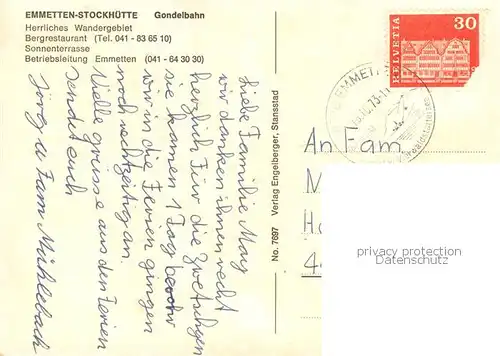 EMMETTEN-STOCKHÜTTE Gondelbahn
Herrliches Wandergebiet
Bergrestaurant (Tel. 041 - 83 65 10)
Sonnenterrasse
Betriebsleitung Emmetten (041 - 64 30 30)
Liebe Familie May
wir danken ihnen recht
herzlich Für die Zwetschgen
sie kamen 1 Tag bevohr
wir in die Ferien gingen
noch rechtzeitig an.
Vielle grüsse aus den Ferien
sendet euch
Jörg u Fam Mühlebach
No. 7697 Verlag Engelberger, Stansstad
HELVETIA
30
EMMETTEN
73-11
An Fam
M
H
4
privacy protection
Datenschutz